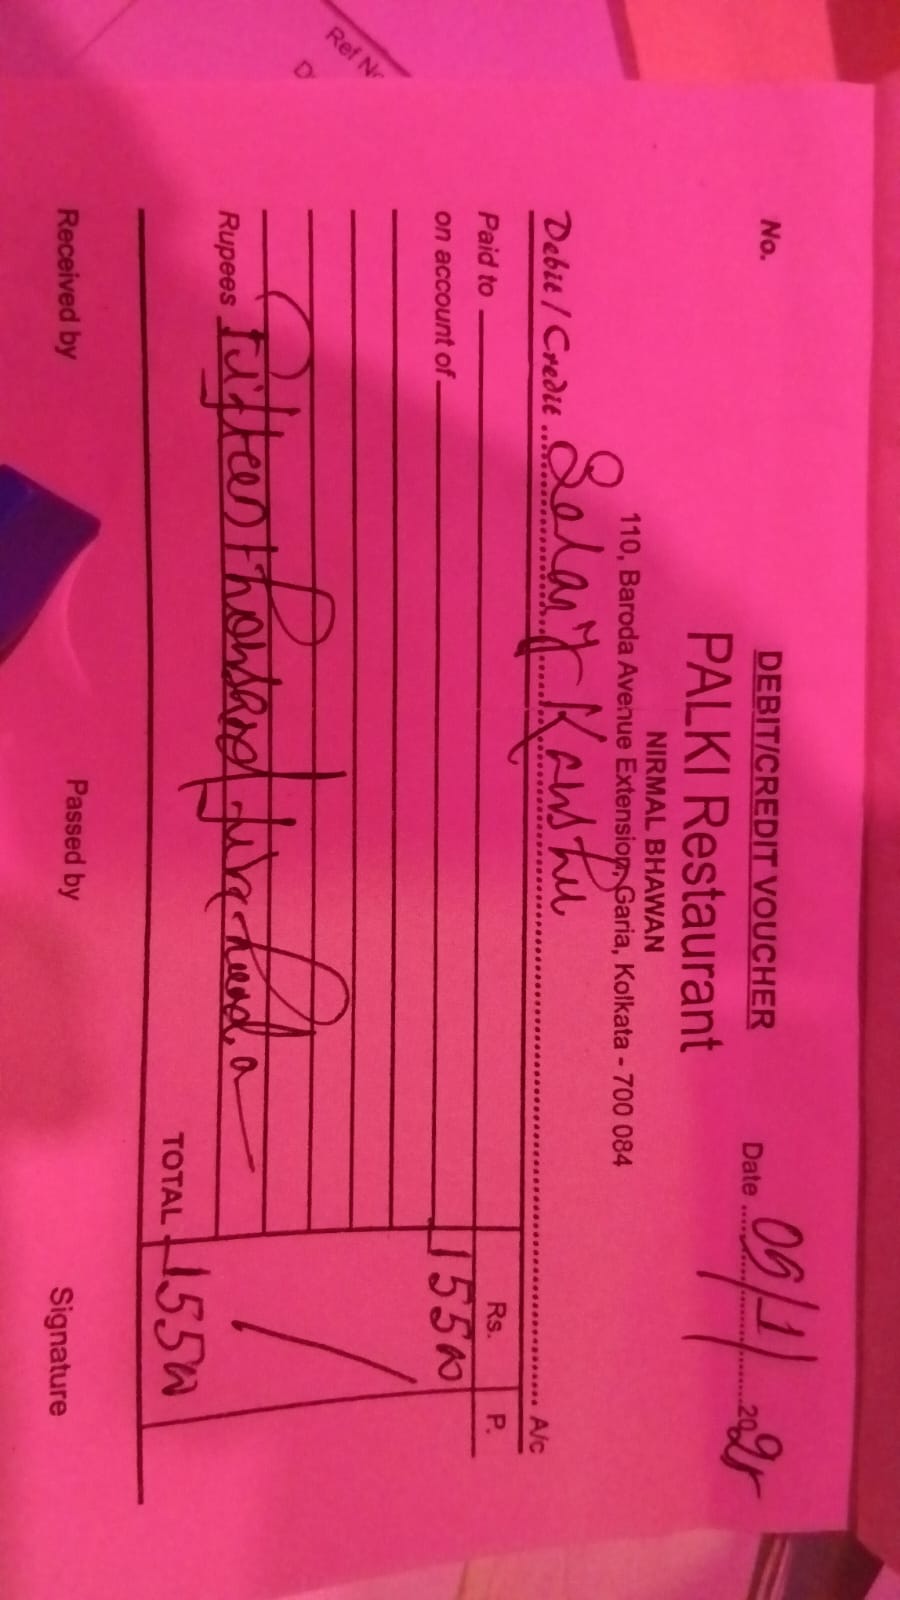 Ref No
D
DEBIT/CREDIT VOUCHER
No.
PALKI Restaurant
Date 05/1/2025
NIRMAL BHAWAN
110, Baroda Avenue Extension, Garia, Kolkata - 700 084
Debit / Credit Salary Kaushu A/c
Rs. P.
Paid to
on account of 15500
Rupees Fuifteen thousand five hundra
TOTAL 15500
Received by Passed by Signature